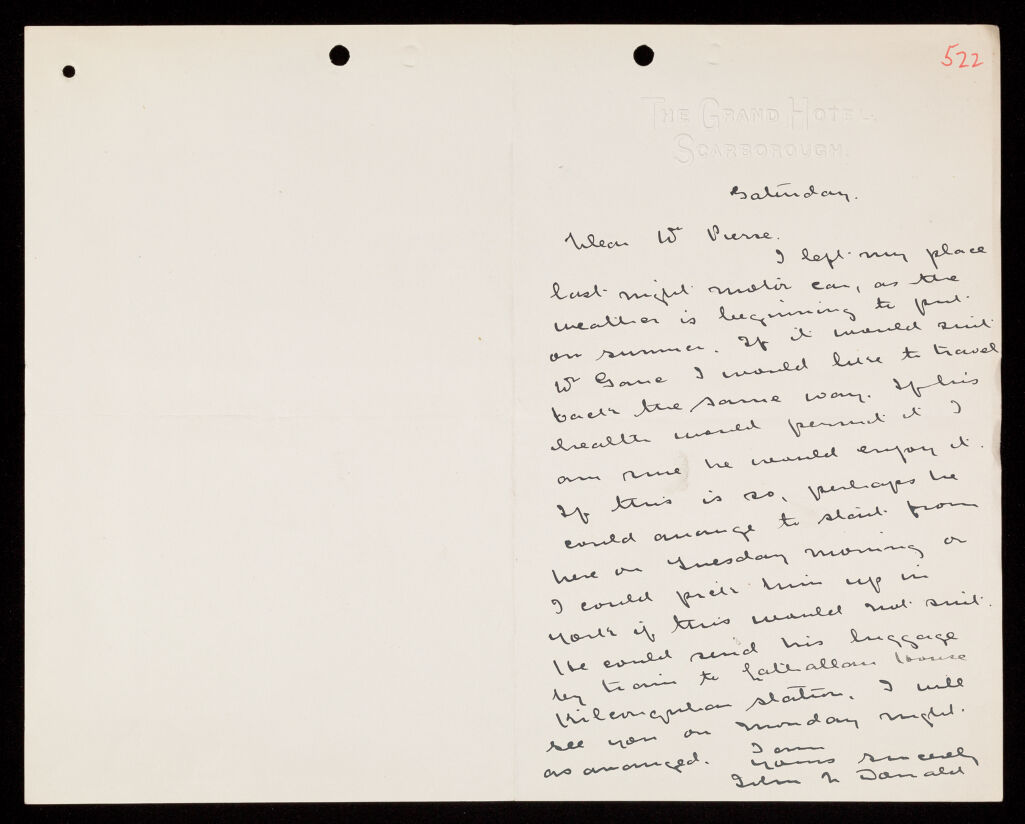 522
THE GRAND HOTEL.
SCARBOROUGH.
Saturday.
Dear Mr Pierse.
I left my place
last night motor car, as the
weather is beginning to put
on summer. If it would suit
Mr Gane I would like to travel
back the same way. If his
health would permit it I
am sure he would enjoy it.
If this is so, perhaps he
could arrange to start from
here on Tuesday morning or
I could pick him up in
York if this would not suit.
He could send his luggage
by train to Lathallan House
Kilconquhar station. I will
see you on Monday night.
as arranged. I am
yours sincerely
Donald